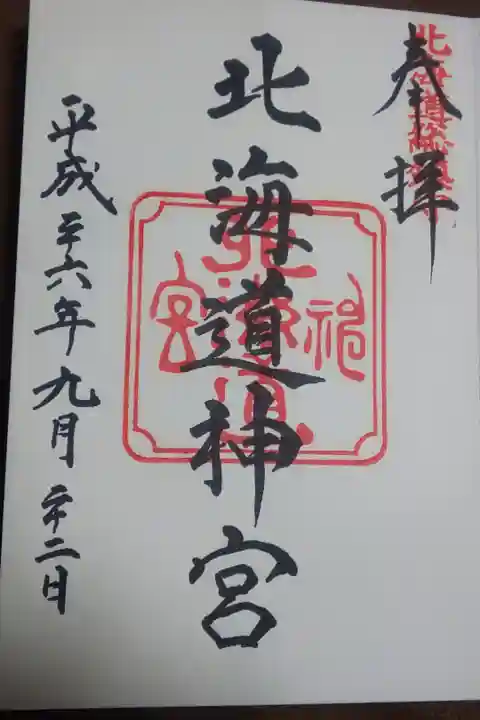 奉拝
北海道総鎮守
北海道神宮
北海道神宮
平成二十六年九月二十二日